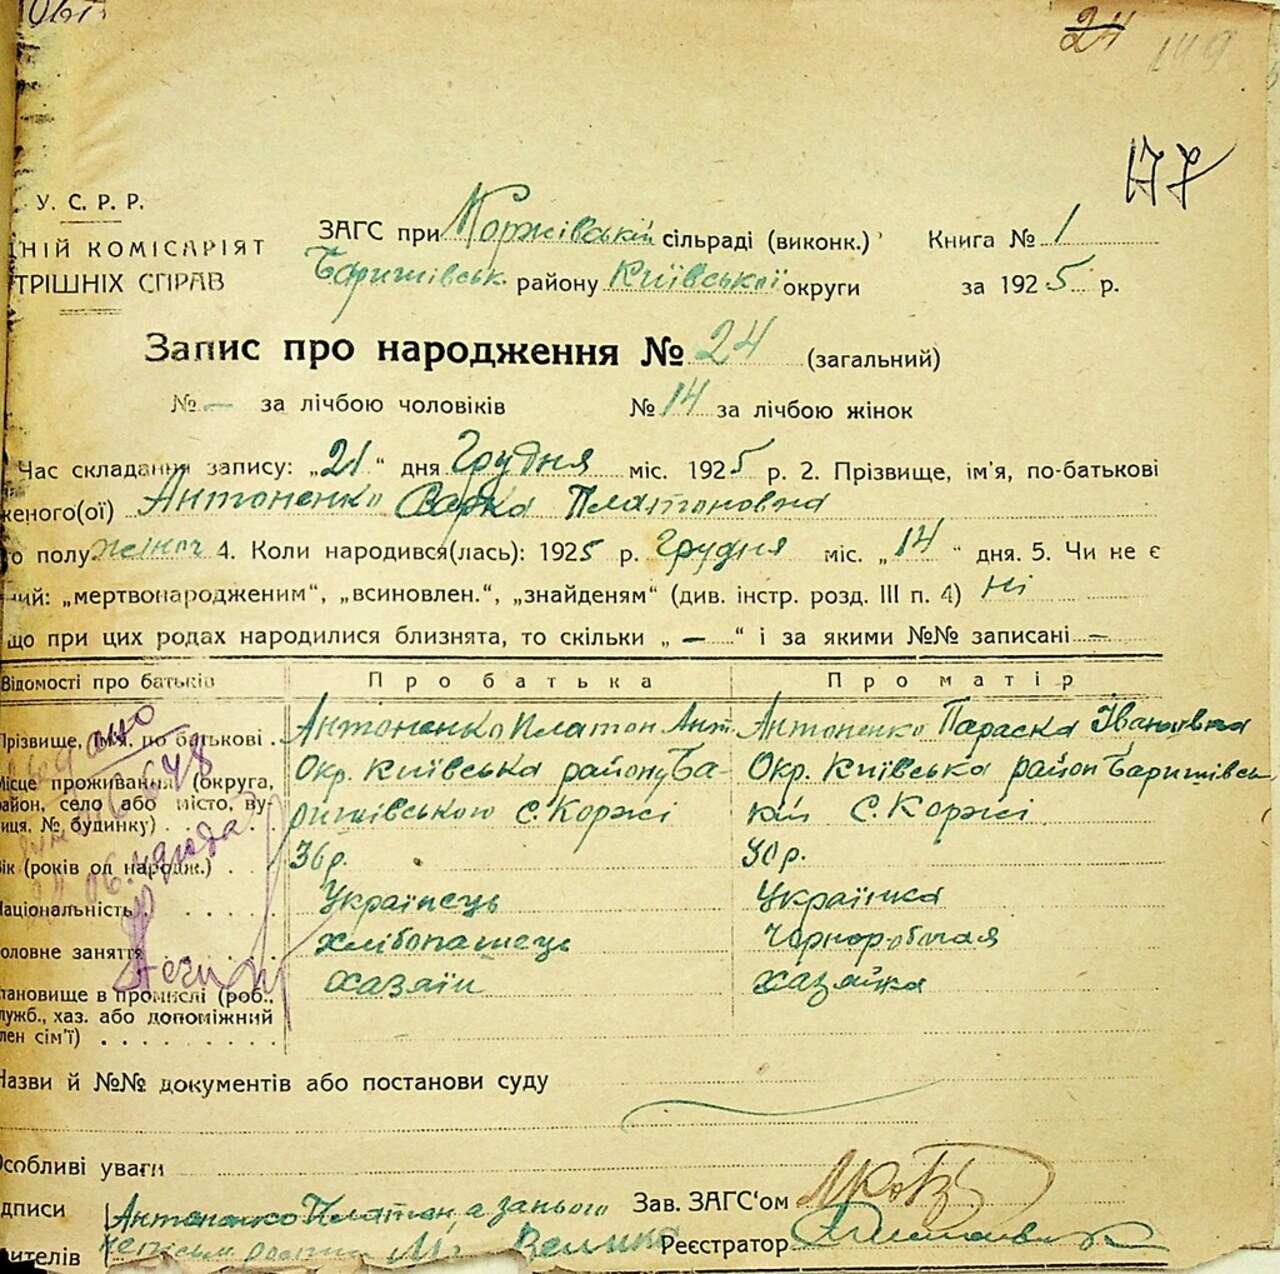 24 149
177
У. С. Р. Р.
ЗАГС при Коржівській сільраді (виконк.) Книга № 1
НІЙ КОМІСАРІЯТ
ТРІШНІХ СПРАВ
Баришівськ. району Київської округи за 1925 р.
Запис про народження № 24 (загальний)
№ — за лічбою чоловіків № 14 за лічбою жінок
Час складання запису: „21“ дня Грудня міс. 1925 р. 2. Прізвище, ім'я, по-батькові
женого(ої) Антоненко Варка Платоновна
о полу жіноч 4. Коли народився(лась): 1925 р. Грудня міс. „14“ дня. 5. Чи не є
ий: „мертвонародженим“, „всиновлен.“, „знайденям“ (див. інстр. розд. III п. 4) Ні
що при цих родах народилися близнята, то скільки „—“ і за якими №№ записані —
Відомості про батьків Про батька Про матір
Прізвище, ім'я, по батькові . Антоненко Платон Ант. Антоненко Параска Івановна
Місце проживання (округа, Окр. Київська району Ба- Окр. Київська район Баришівсь
район, село або місто, ву-
иця, № будинку) . . . ришівського С. Коржі кій С. Коржі
ік (років од народж.) . . 36р. 30р.
Національність . . . . . Українець Українка
оловне заняття . . . . хлібопашець Чорноробочая
тановище в промислі (роб., хазяїн хазяйка
служб., хаз. або допоміжний
лен сім'ї) . . . . . . . .
Назви й №№ документів або постанови суду
Особливі уваги
дписи Антоненко Платон, а за нього Зав. ЗАГС'ом
ителів Реєстратор